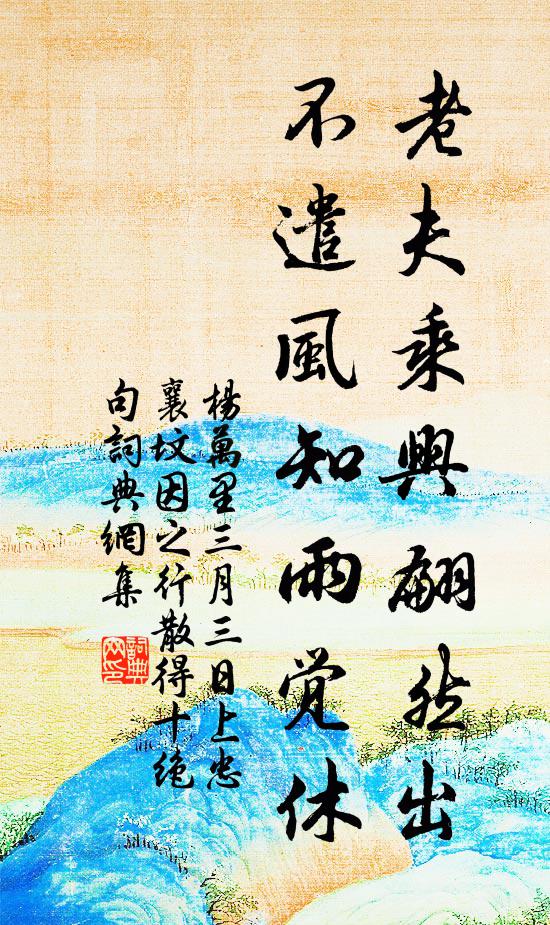 老夫乘興翩然出
不遣風知雨覚休
楊萬里三月三日上忠
襄坟因之行散得十絶
句詞典網集
詞典